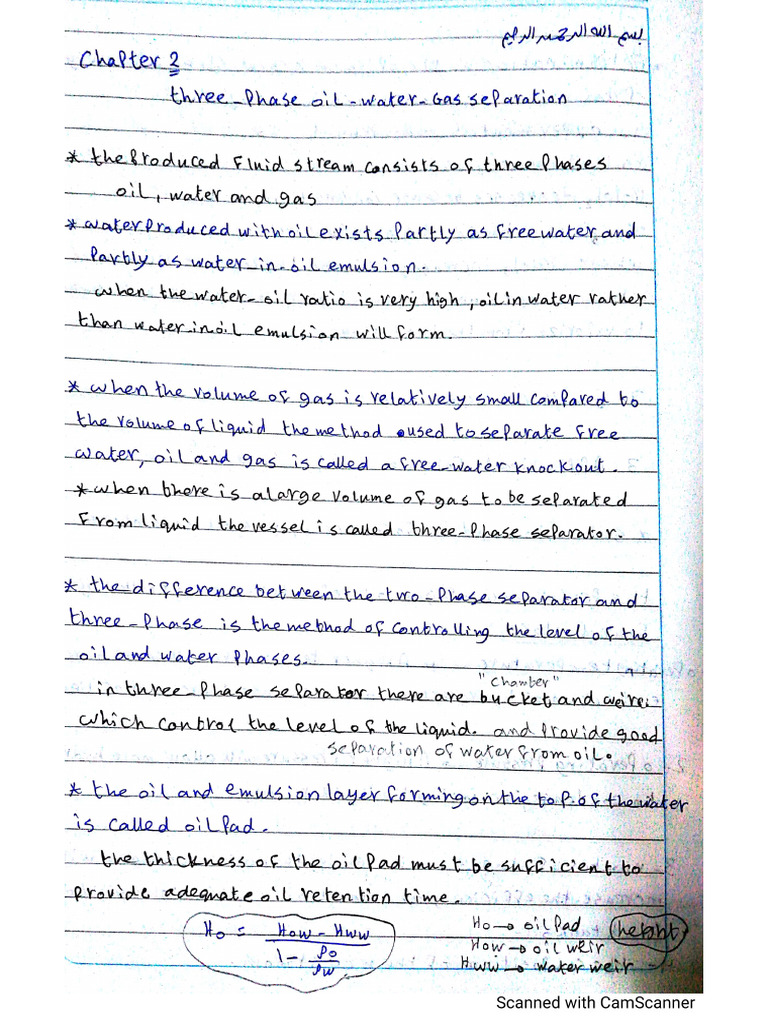 بسم الله الرحمن الرحيم
Chapter 2
three-Phase oil-water-Gas separation
* the Produced Fluid stream consists of three Phases
oil, water and gas
* water Produced with oil exists Partly as free water and
Partly as water-in-oil emulsion.
when the water-oil ratio is very high, oil in water rather
than water in oil emulsion will form.
* when the volume of gas is relatively small compared to
the volume of liquid the method used to separate free
water, oil and gas is called a free-water knockout.
* when there is a large volume of gas to be separated
From liquid the vessel is called three-Phase separator.
* the difference between the two-Phase separator and
three-Phase is the method of controlling the level of the
oil and water Phases.
"chamber"
in three-Phase separator there are bucket and weire
which control the level of the liquid. and Provide good
separation of water from oil.
* the oil and emulsion layer forming on the top of the water
is called oil Pad.
the thickness of the oil Pad must be sufficient to
Provide adequate oil retention time.
Ho = How - Hww / 1 - ρo/ρw
Ho → oil Pad height
How → oil weir
Hww → water weir
Scanned with CamScanner